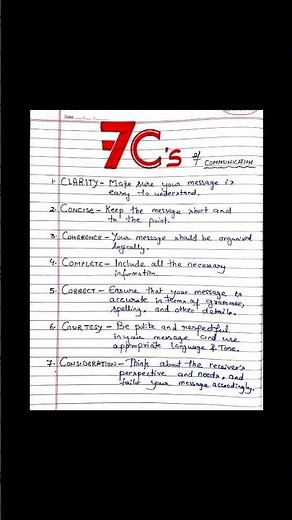 Date
7C's of
COMMUNICATION
1. CLARITY - Make sure your message is
easy to understand.
2. CONCISE - Keep the message short and
to the point.
3. COHERENCE - Your message should be organised
logically.
4. COMPLETE - Include all the necessary
information.
5. CORRECT - Ensure that your message is
accurate in terms of grammar,
spelling, and other details.
6. COURTESY - Be polite and respectful
in your message and use
appropriate language & Tone.
7. CONSIDERATION - Think about the receiver's
perspective and needs, and
tailor your message accordingly.